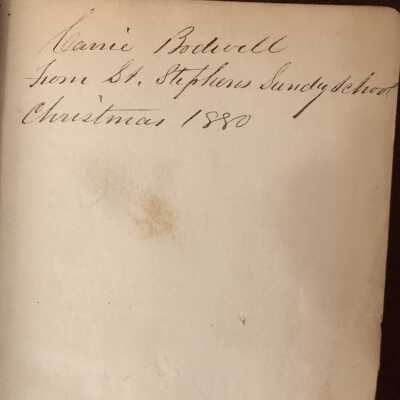 Carrie Bodwell
from St. Stephens Sundy school
Christmas 1880